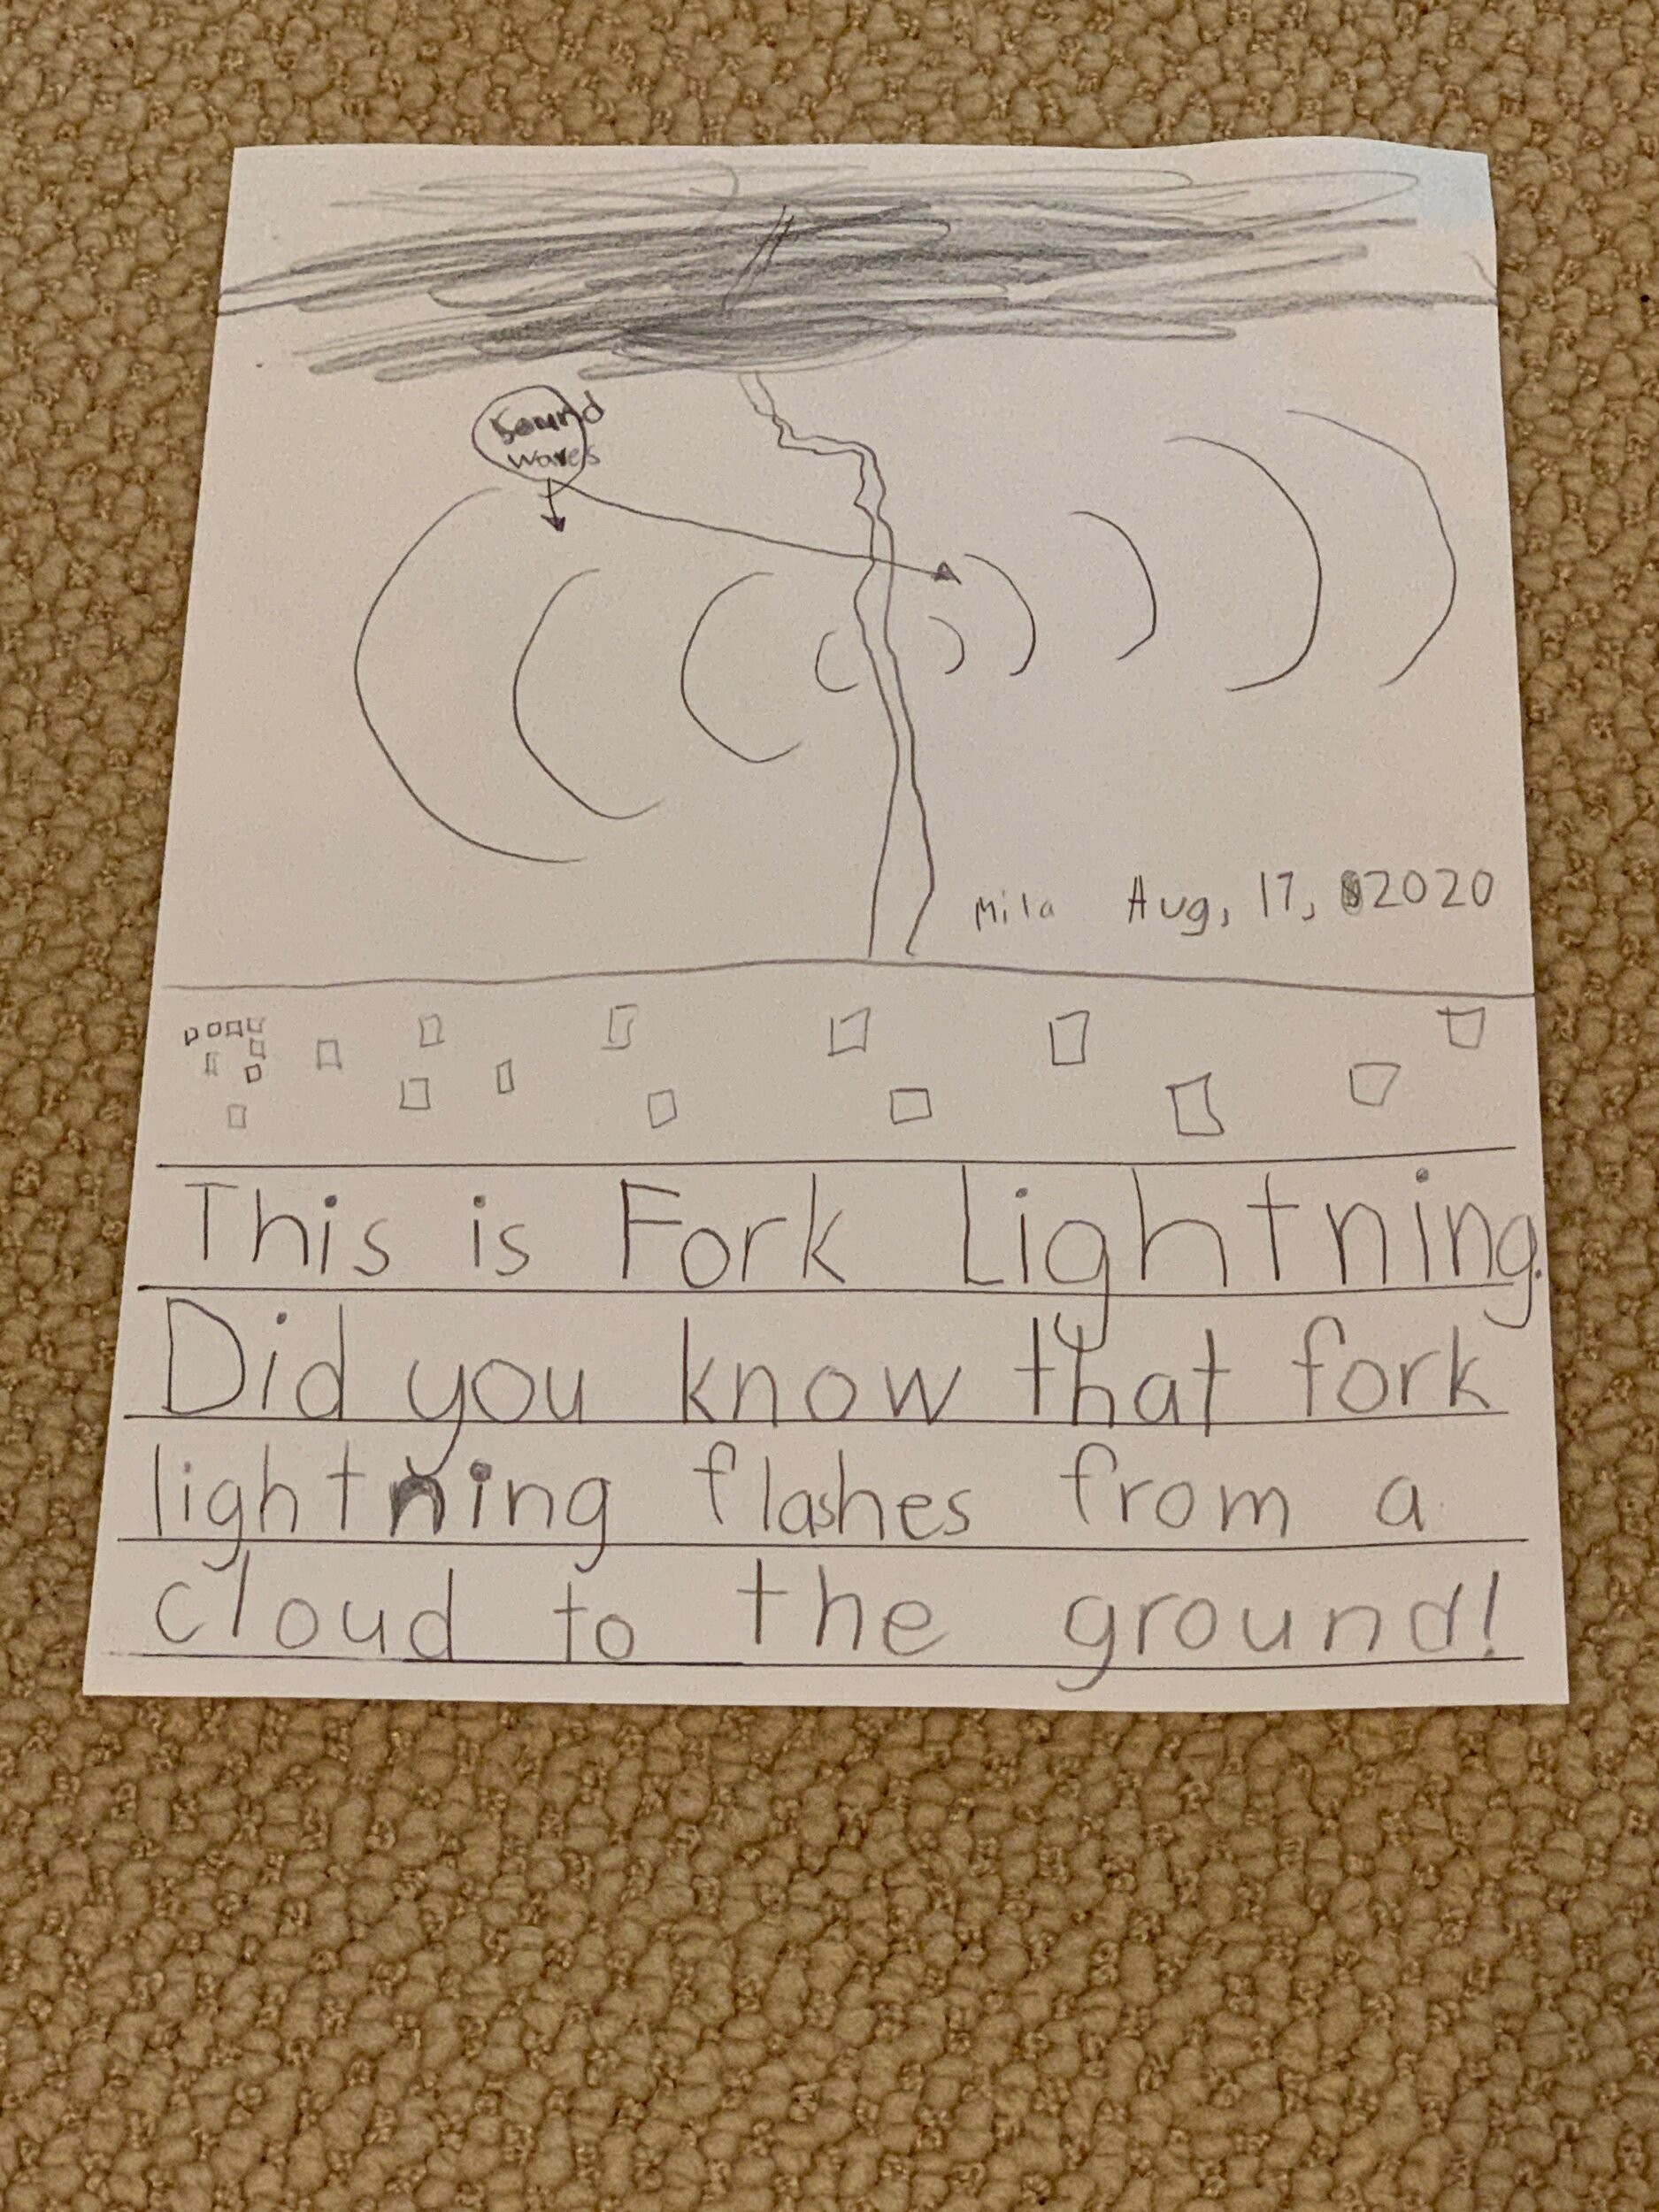 Sound
waves
Mila Aug, 17, 2020
This is Fork Lightning.
Did you know that fork
lightning flashes from a
cloud to the ground!